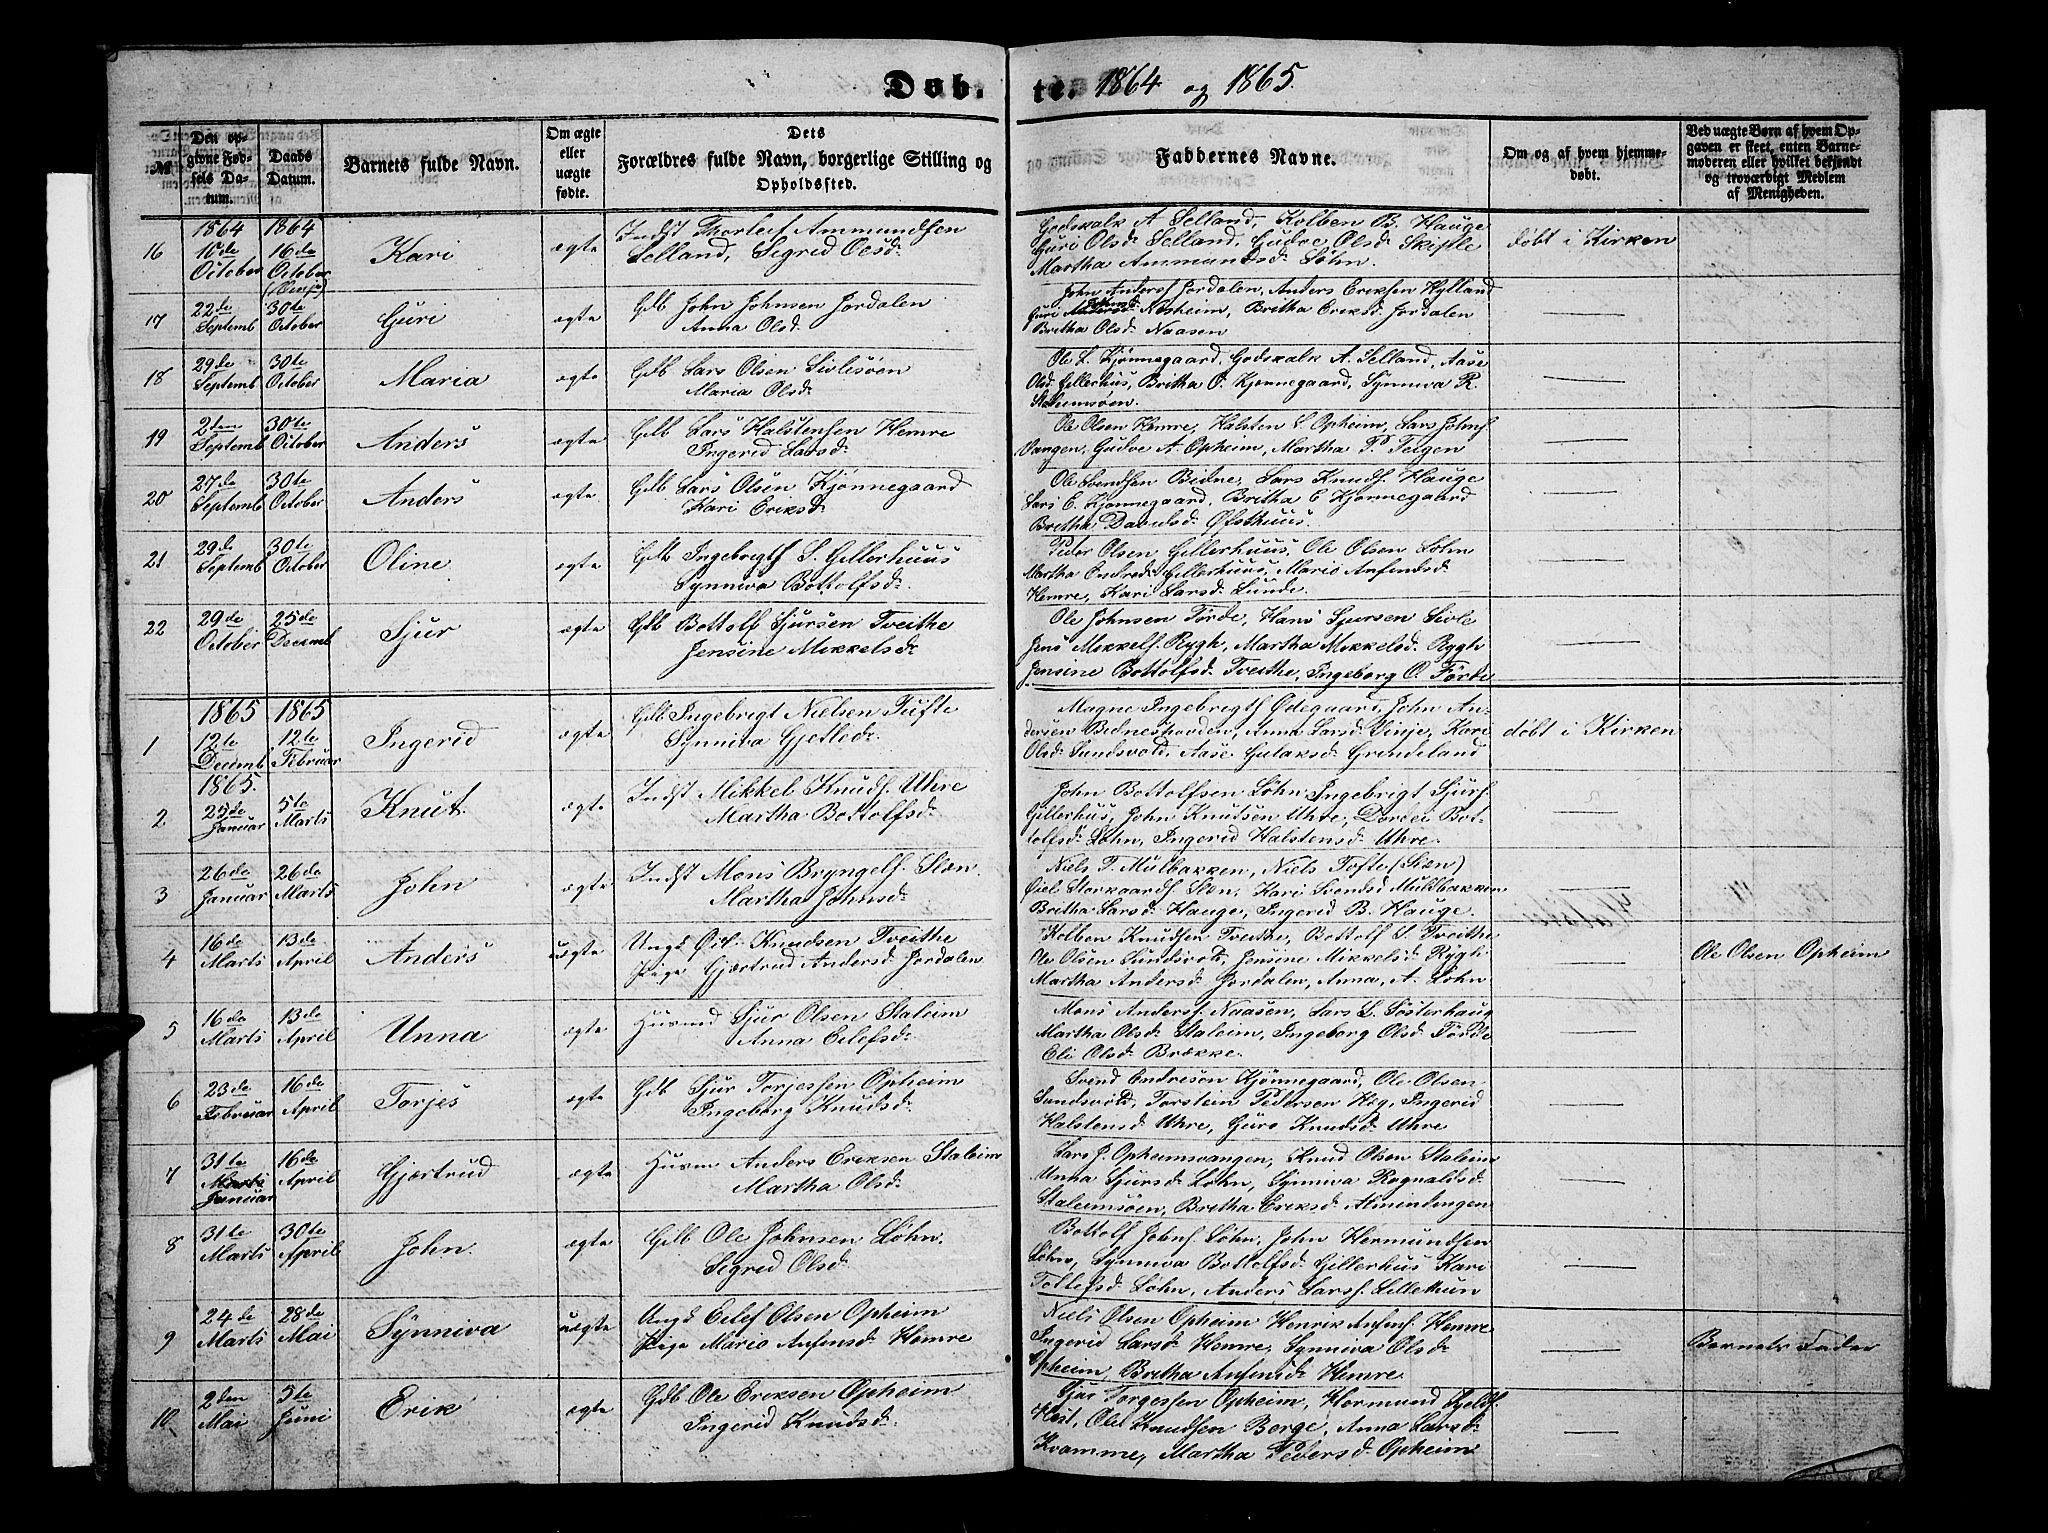 Døb. te. 1864 og 1865.
№
Den op-
givne Fød-
sels Da-
tum.
Daabs
Datum.
Barnets fulde Navn.
Om ægte
eller
uægte
fødte.
Dets
Forældres fulde Navn, borgerlige Stilling og
Opholdssted.
Faddernes Navne.
Om og af hvem hjemme-
døbt.
Ved uægte Børn af hvem Op-
gaven er skeet, enten Barne-
moderen eller hvilket bekjendt
og troværdigt Medlem
af Menigheden.
16
1864
10de
October
1864
16de
October
Kari
ægte
Indst Thorleif Ammundsen
Selland, Sigrid Olsd.
Godskalk A Selland, Kolben B. Hauge
Guri Olsd. Selland, Gudve Olsd. Skiple
Martha Ammundsd. Løhn.
døbt i Kirken
17
22de
Septemb
30te
October
Guri
ægte
Gdb John Johnsen Jordalen
Anna Olsd.
John Andersf Jordalen, Anders Eriksen Hylland
Guri Nosheim, Britha Eriksd. Jordalen
Britha Olsd. Naasen
18
29de
Septemb
30te
October
Maria
ægte
Gdb Lars Olsen Sivlesøen
Maria Olsd.
Ole L. Kjønnegaard, Godskalk A. Selland, Aase
Olsd. Gillerhus, Britha O. Kjønnegaard, Synniva R.
Staleimsøen.
19
2den
Septemb
30te
October
Anders
ægte
Gdb Lars Halstensen Hemre
Ingerid Larsd.
Ole Olsen Hemre, Halsten L Opheim, Lars Johnf.
Vangen, Gudve A. Opheim, Martha P. Felgen
20
27de
Septemb
30te
October
Anders
ægte.
Gdb Lars Olsen Kjønnegaard
Kari Eriksd.
Ole Svendsen Bidne, Lars Knudf. Hauge
Lars E. Kjønnegaard, Britha E Kjønnegaard
Britha Davidsd. Øfsthuus.
21
29de
Septemb
30te
October
Oline
ægte
Gdb Ingebrigtf S. Gillerhuus
Synniva Bottolfsd.
Peder Olsen Gillerhuus, Ole Olsen Løhn
Martha Endred. Gillerhuus, Mario Anfendsd.
Hemre, Kari Larsd. Lunde.
22
29de
October
25de
Decemb
Sjur
ægte
Gdb Bottolf Sjursen Tveithe
Jensine Mikkelsd.
Ole Johnsen Førde, Hans Sjursen Sivle
Jens Mikkelf. Rygh, Martha Mikkelsd. Rygh
Jensine Bottolfsd. Tveithe, Ingeborg O. Førde
1
1865
12te
Decemb
1865
12te
Februar
Ingerid
ægte
Gdb Ingebrigt Nielsen Tufte
Synniva Gjetled.
Magne Ingebrigtf Ødegaard, John An-
dersen Bidneshaven, Anna Larsd. Vinje, Kari
Olsd. Sundsvold, Aase Gulaksd. Grindeland
døbt i Kirken
2
1865.
25de
Januar
5te
Marts
Knut
ægte
Indst Mikkel Knudf. Uhre
Martha Bottolfsd.
John Bottolfsen Løhn, Ingebrigt Sjurf.
Gillerhus, John Knutsen Uhre, Dordei Bot-
tolfsd. Løhn, Ingerid Halstensd. Uhre.
3
26de
Januar
26de
Marts
John
ægte
Indst Mons Bryngelf. Slæn
Martha Johnsd.
Niels P. Mulbakken, Niels Tofte (Slæn)
Øiel Storkaardf. Slæn, Kari Svendsd. Muldbakken
Britha Larsd. Hauge, Ingerid B. Hauge.
4
16de
Marts
13de
April
Anders
uægte
Ungd Øil. Knudsen Tveithe
Pige Gjørtrud Andersd. Jordalen
Kolben Knudsen Tveithe, Bottolf S Tveithe
Ole Olsen Sundsvold, Jensine Mikkelsd. Rygh
Martha Andersd. Jordalen, Anna, A. Løhn
Ole Olsen Opheim
5
16de
Marts
13de
April
Unna
ægte
Husmd Sjur Olsen Staleim
Anna Eilefsd.
Mons Andersf. Naasen, Lars L. Søsterhaug
Martha Olsd. Staleim, Ingeborg Olsd. Førde
Eli Olsd. Brække.
6
23de
Februar
16de
April
Torjes
ægte
Gdb Sjur Torjessen Opheim
Ingeborg Knudsd.
Svend Endresen Kjønnegaard, Ole Olsen
Sundsvold, Torstein Pedersen Høg, Ingerid
Halstensd. Uhre, Guro Knudsd. Uhre
7
31te
Marts
Januar
16de
April
Gjørtrud
ægte
Husm Anders Eriksen Staleim
Martha Olsd.
Lars J. Opheimsvangen, Knud Olsen Staleim
Unna Sjursd. Løhn, Synniva Ragnaldsd.
Staleimsøen, Britha Eriksd. Almintengen
8
31te
Marts
30te
April
John.
ægte
Gdb Ole Johnsen Løhn.
Sigrid Olsd.
Bottolf Johnf. Løhn, John Hermundsen
Løhn, Synniva Bottolfsd. Gillerhus Kari
Tollefsd. Løhn, Anders Larsf. Lillethun
9
24de
Marts
28de
Mai
Synniva
uægte
Ungd Eilef Olsen Opheim
Pige Mario Anfensd. Hemre
Niels Olsen Opheim Henrik Anfinf. Hemre
Ingerid Larsd. Hemre, Synniva Olsd.
Opheim, Britha Anfensd. Hemre
Barnets Fader
10
2den
Mai
5te
Juni
Erik
ægte
Gdb Ole Eriksen Opheim
Ingerid Knudsd.
Sjur Torgessen Opheim, Hormund
Høst, Ole Knudsen Berge, Anna Larsd.
Kvamme, Martha Pedersd. Opheim